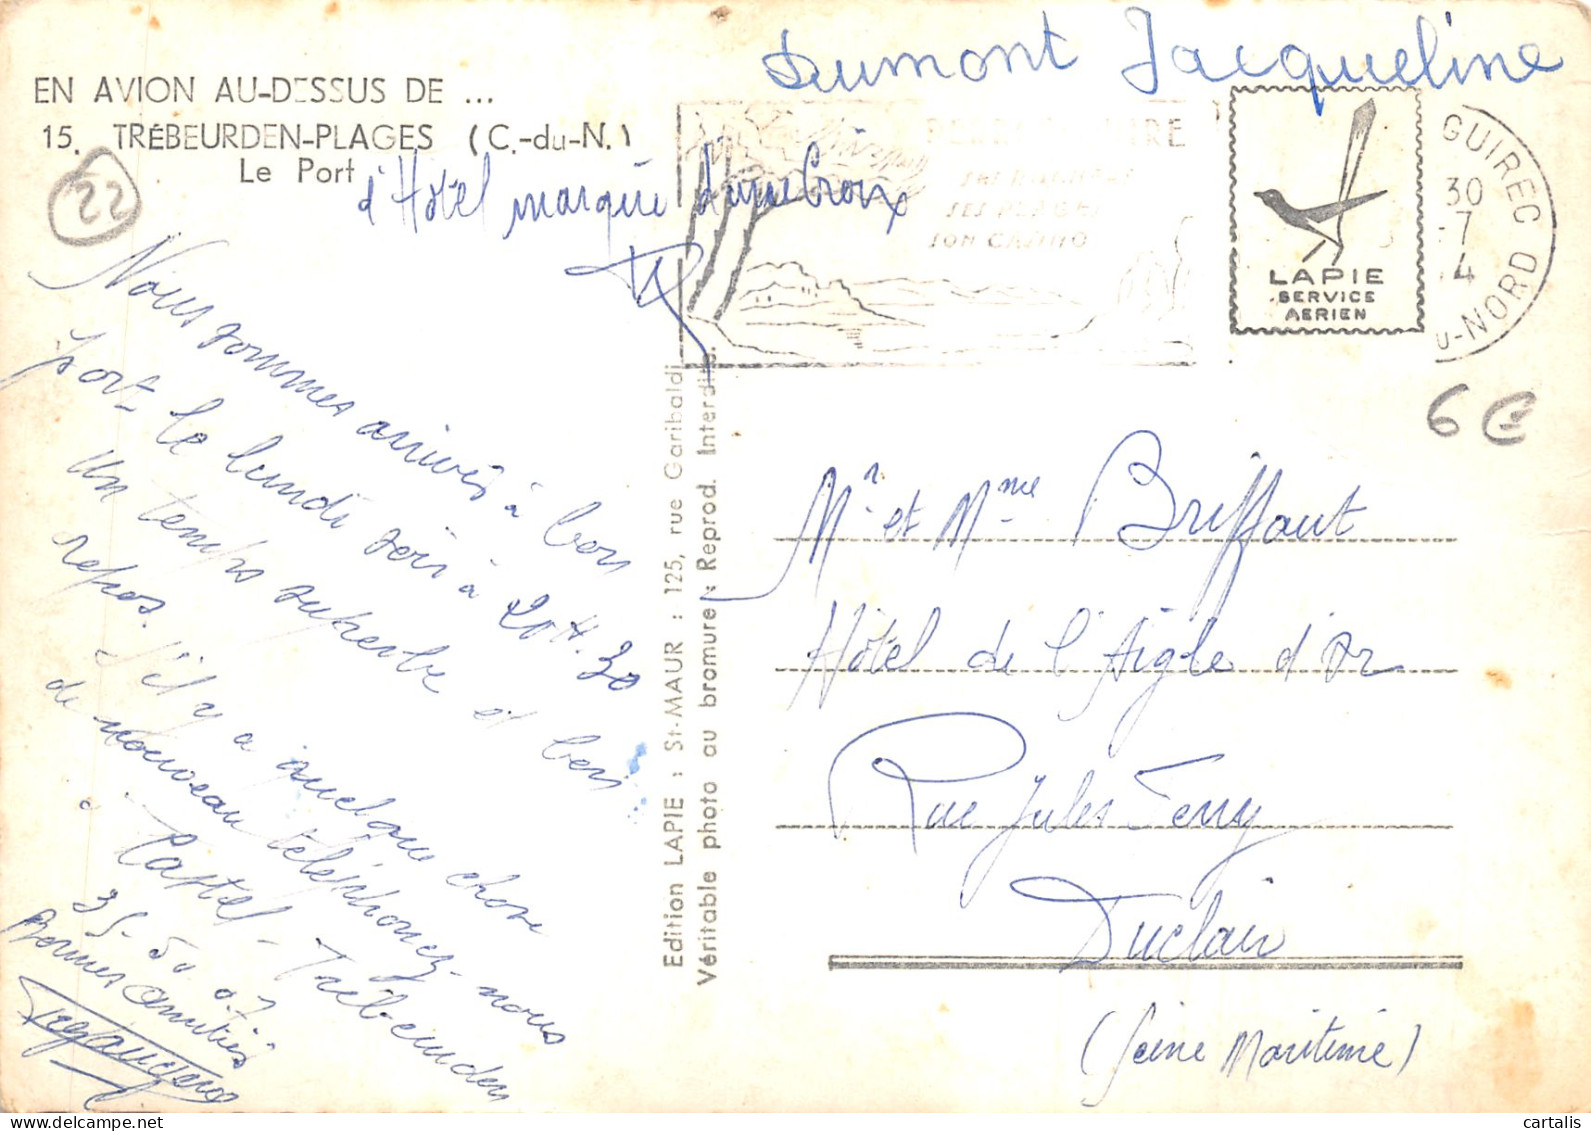 Dumont Jacqueline
EN AVION AU-DESSUS DE ...
15. TRÉBEURDEN-PLAGES (C.-du-N.)
Le Port
22
d'Hôtel marquée d'une Croix
SES PLAGES
SON CASINO
LAPIE
SERVICE
AERIEN
GUIREC
30
-7
4
U-NORD
6 €
Nous sommes arrivés à bon
port le lundi soir à 20 H. 30
Un temps superbe et bon
repos. S'il y a quelque chose
de nouveau téléphonez-nous
à Castel - Trébeurden
35-50 07
Bonnes Amitiés
Edition LAPIE : St-MAUR : 125, rue Garibaldi
Véritable photo au bromure : Reprod. Interdite.
Mr et Mme Briffaut
Hôtel de l'Aigle d'Or
Rue Jules Ferry
Duclair
(Seine Maritime)
cartalis